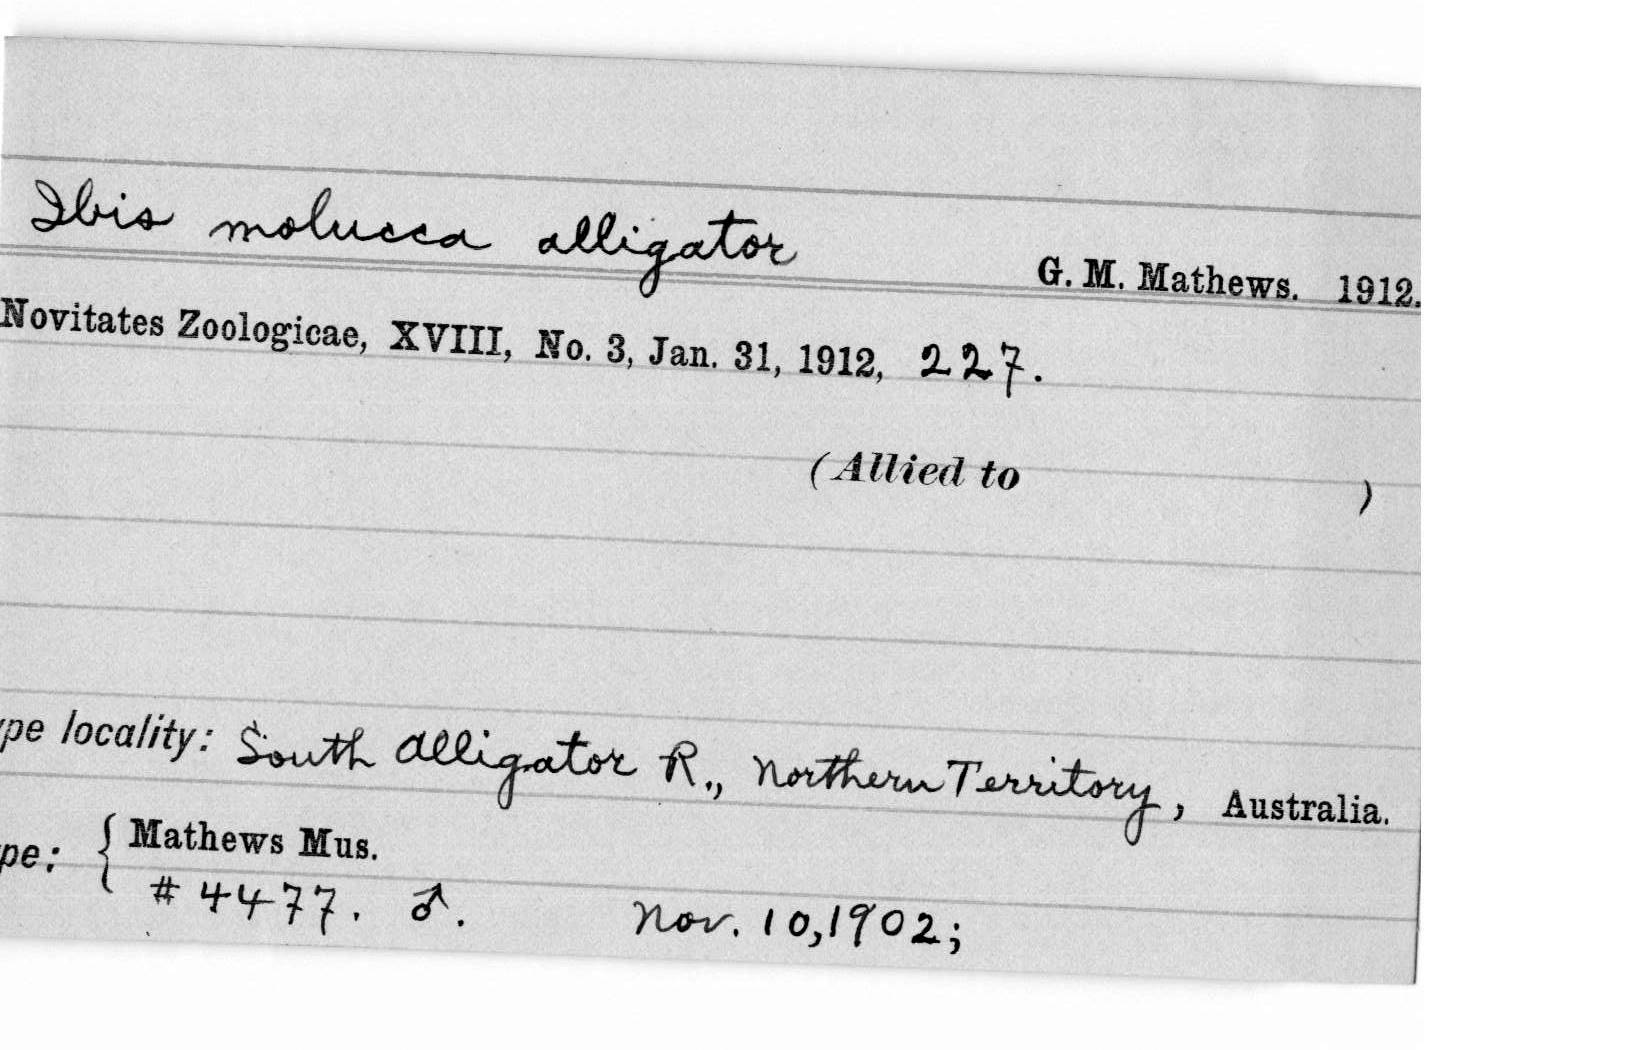 Ibis molucca alligator G. M. Mathews. 1912.
Novitates Zoologicae, XVIII, No. 3, Jan. 31, 1912, 227.
(Allied to )
ype locality: South Alligator R., Northern Territory, Australia.
pe: { Mathews Mus.
# 4477. ♂. Nov. 10, 1902;